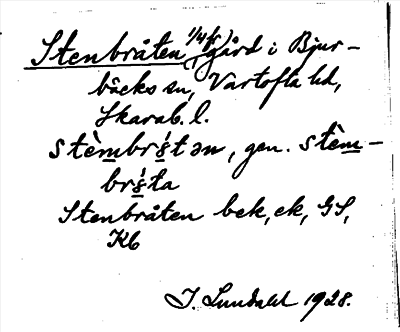 Stenbråten, 1/4 kr, gård i Bjur-
bäcks sn, Vartofta hd,
Skarab. l.
stèmbrs̀tən, gen. stèm-
brs̀ta
Stenbråten bek, ek, GS,
Kb
I. Lundahl 1928.